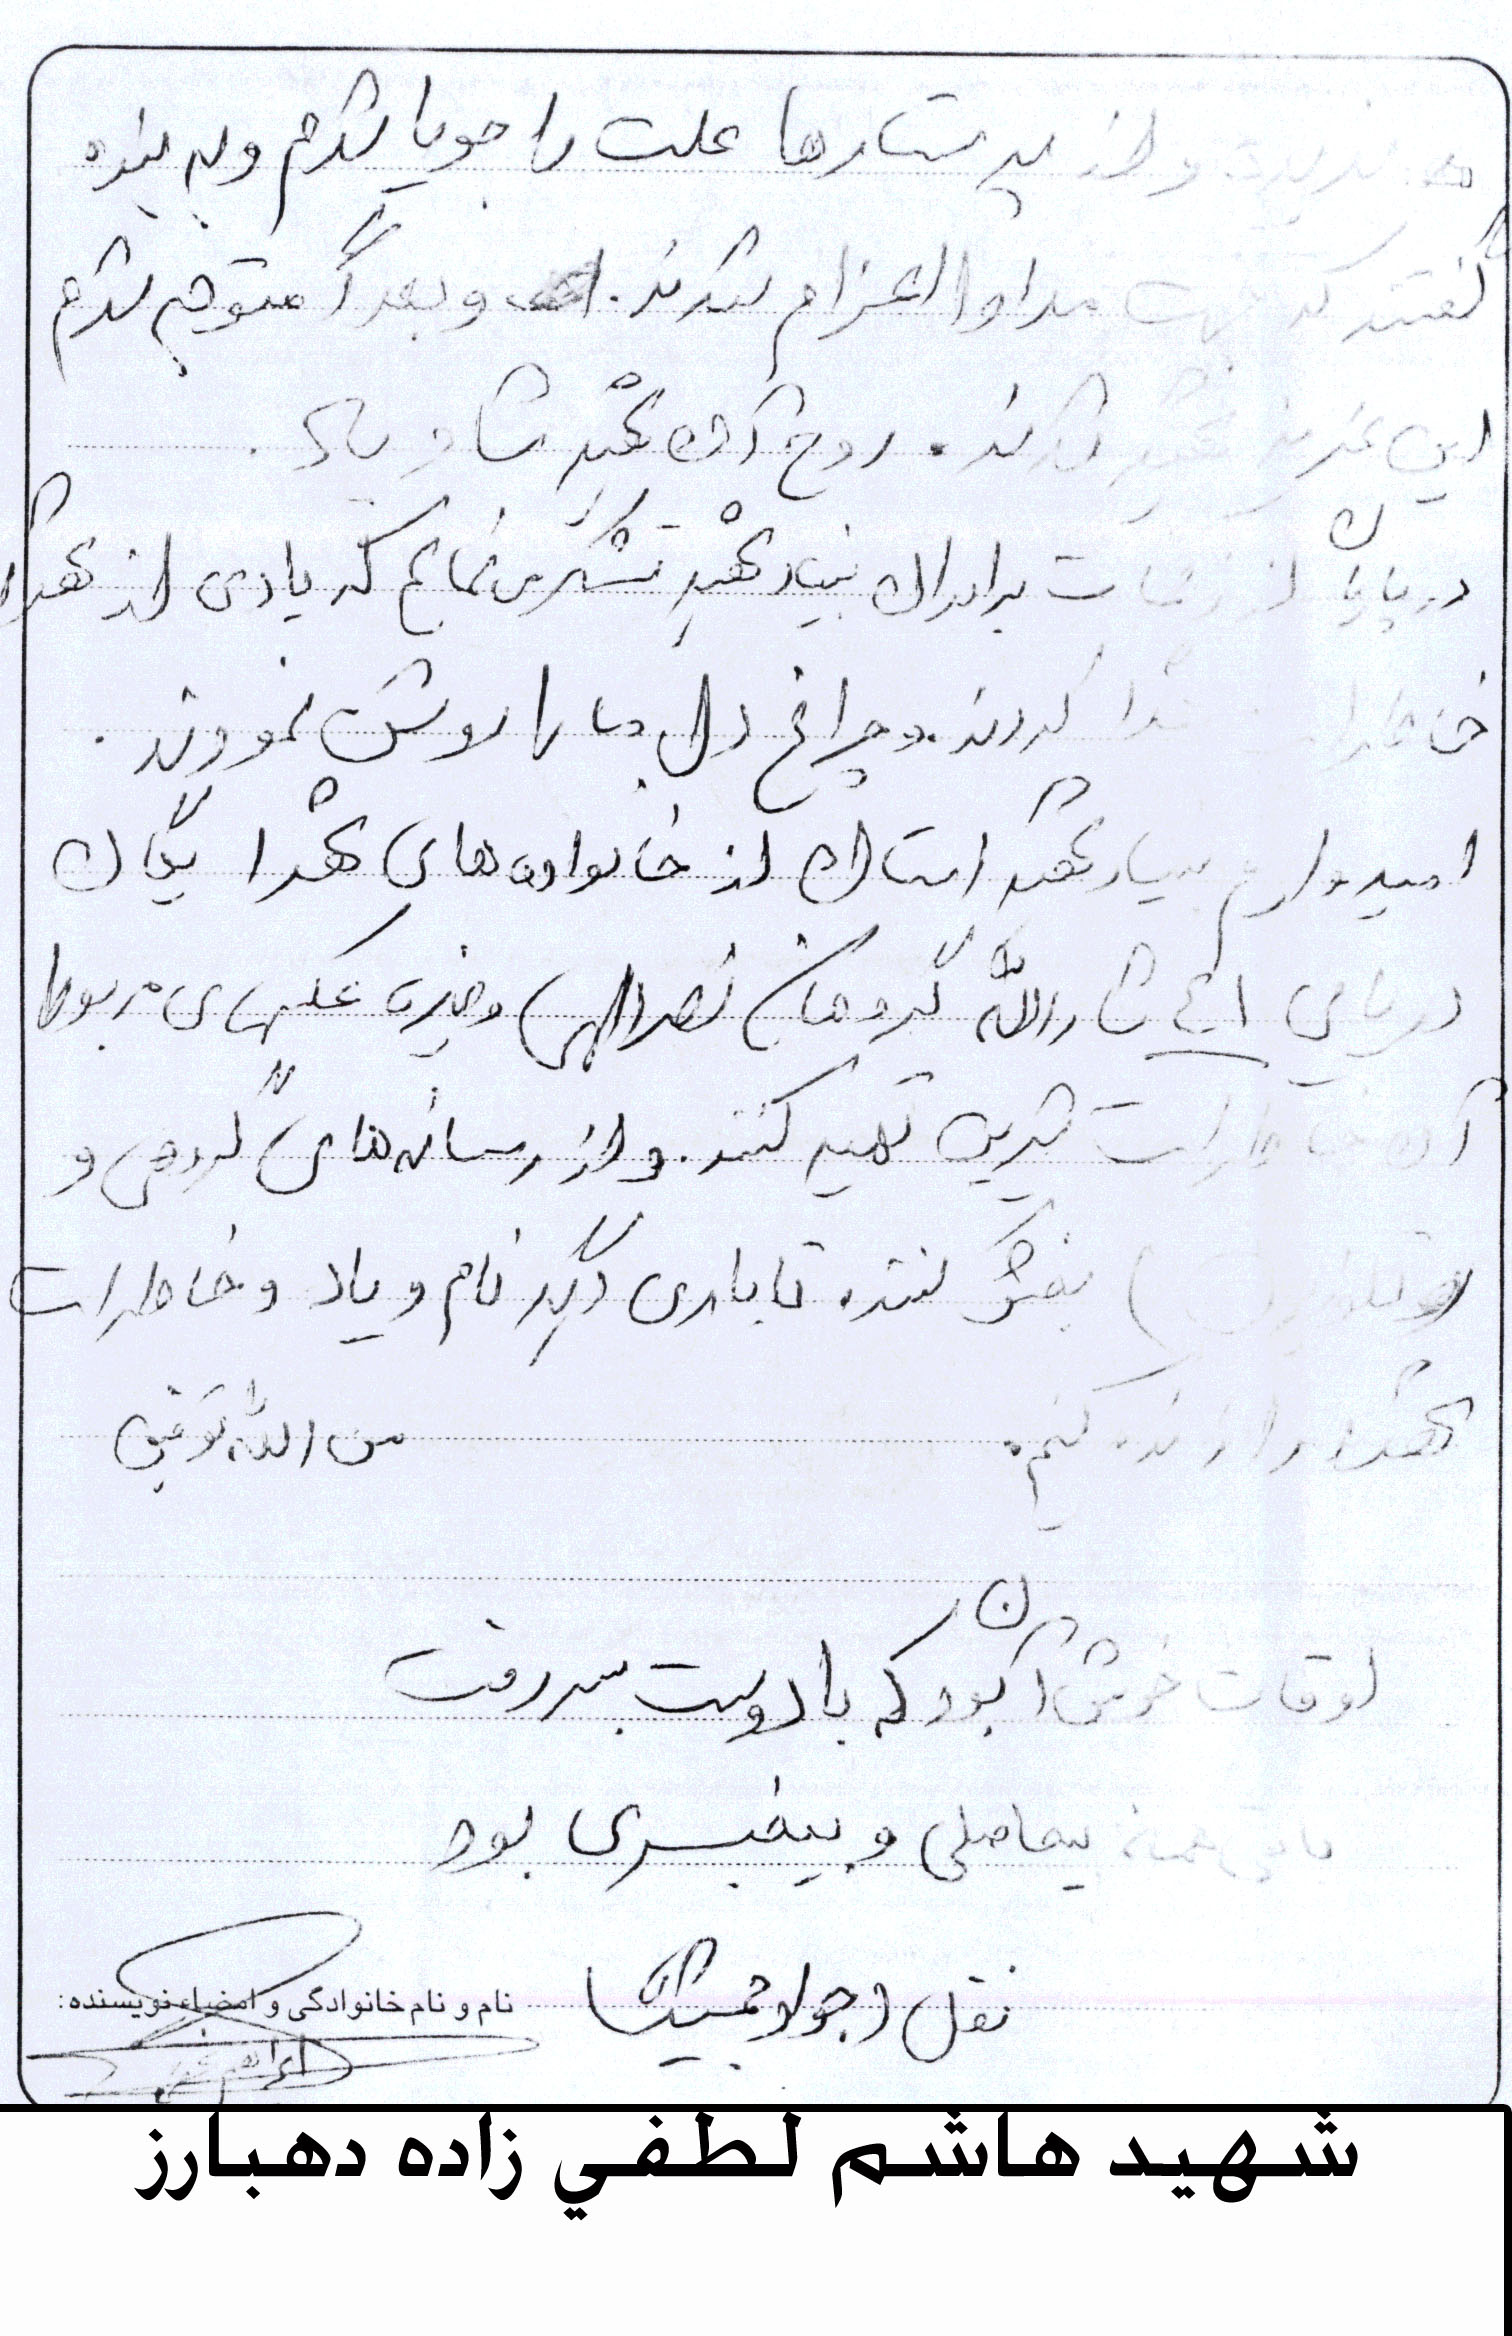 و از پرستارها علت را جویا شدم و به بنده
گفتند که جهت مداوا اعزام شدند. و بعداً متوجه شدم
این عزیز شهید شدند. روح آن شهید شاد باد.
در پایان از زحمات برادران بنیاد شهید تشکر می‌نمایم که یادی از شهدا
خاطرات شهدا کردند. و چراغ دل ما را روشن نمودند.
امیدوارم بنیاد شهید استان از خانواده‌های شهدا یگان
دریایی ثارالله گروهان نصرالهی و عکسهای مربوط
آن خاطرات شیرین تهیه کنند. و از رسانه‌های گروهی و
تلویزیون پخش کنند. تا باری دیگر نام و یاد و خاطرات
شهدا را زنده کنیم. من الله توفیق
اوقات خوش آن بود که با دوست بسر رفت
باقی همه بیحاصلی و بیخبری بود
نقل از جواد
نام و نام خانوادگی و امضاء نویسنده:
شهید هاشم لطفي زاده دهبارز